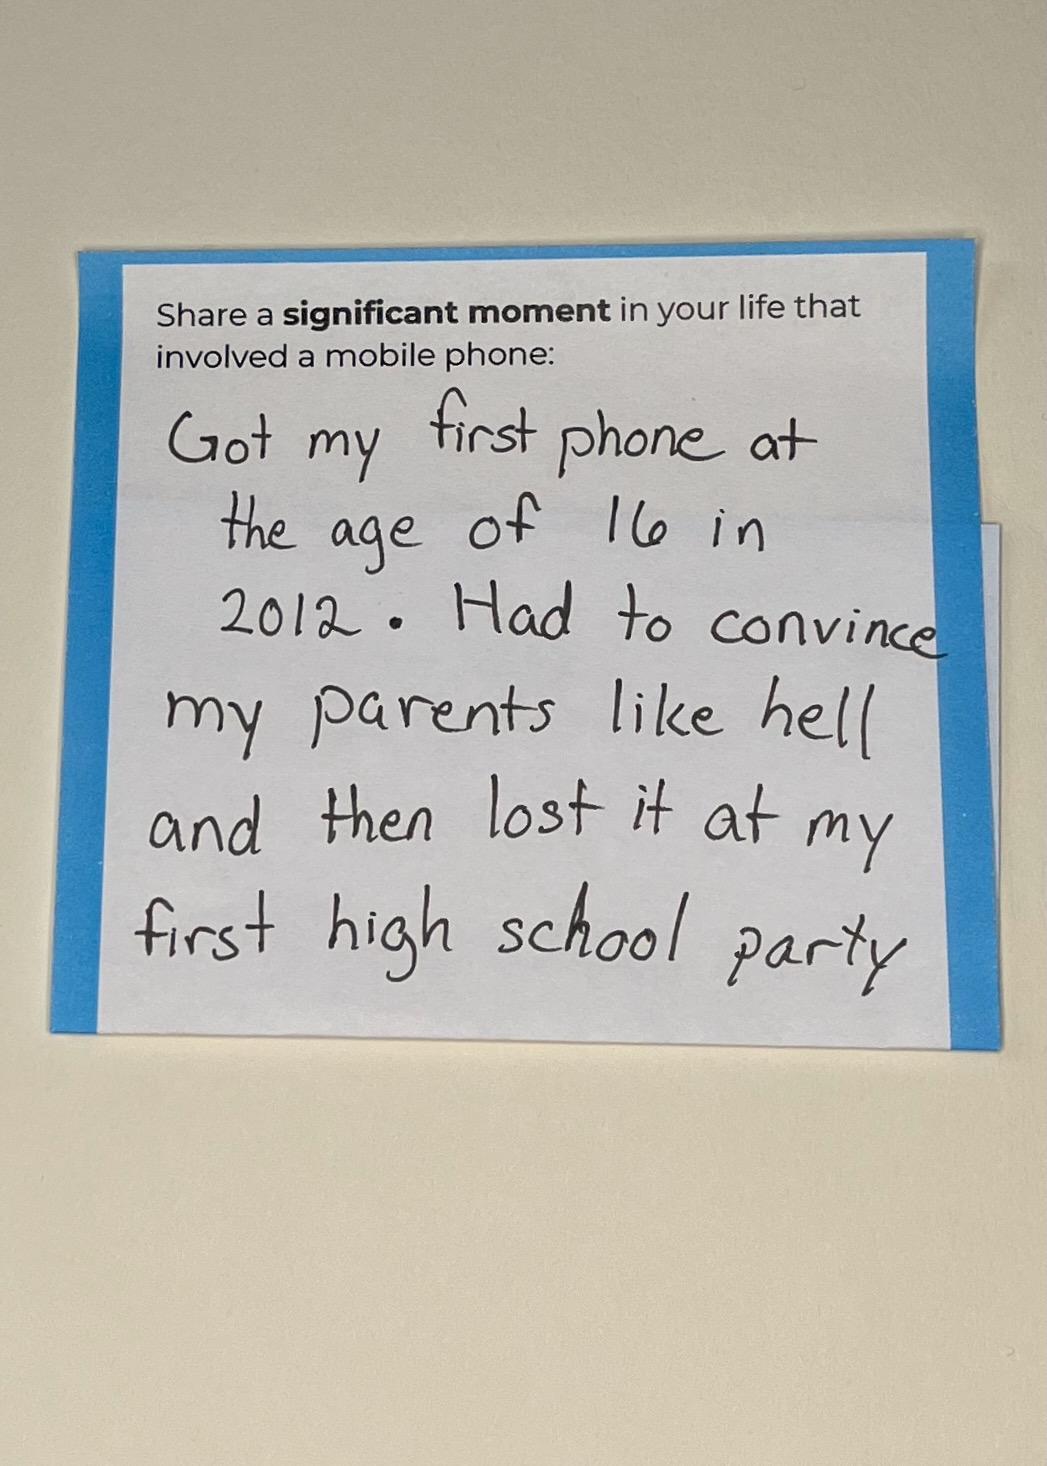 Share a significant moment in your life that
involved a mobile phone:
Got my first phone at
the age of 16 in
2012. Had to convince
my parents like hell
and then lost it at my
first high school party